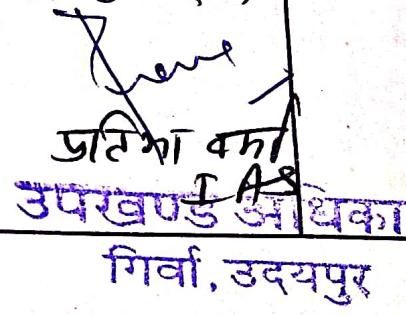 प्रतिभा वर्मा
IAS
उपखण्ड अधिका
गिर्वा, उदयपुर